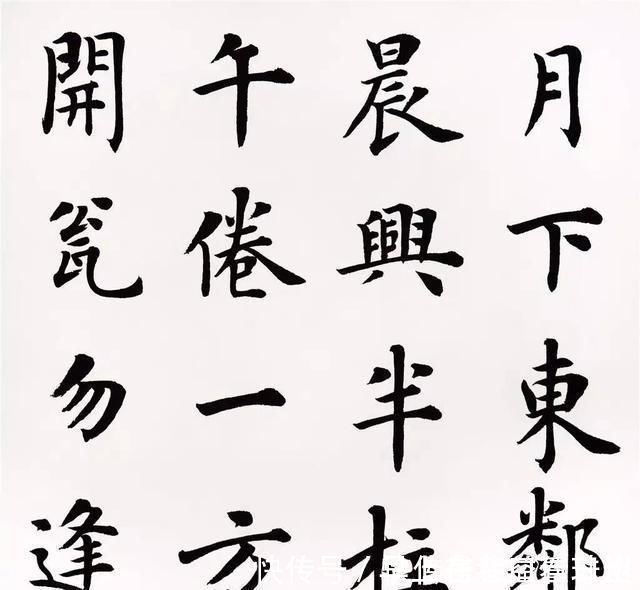 月下東鄰
晨興半柱
午倦一方
開瓮勿逢
快传号 /